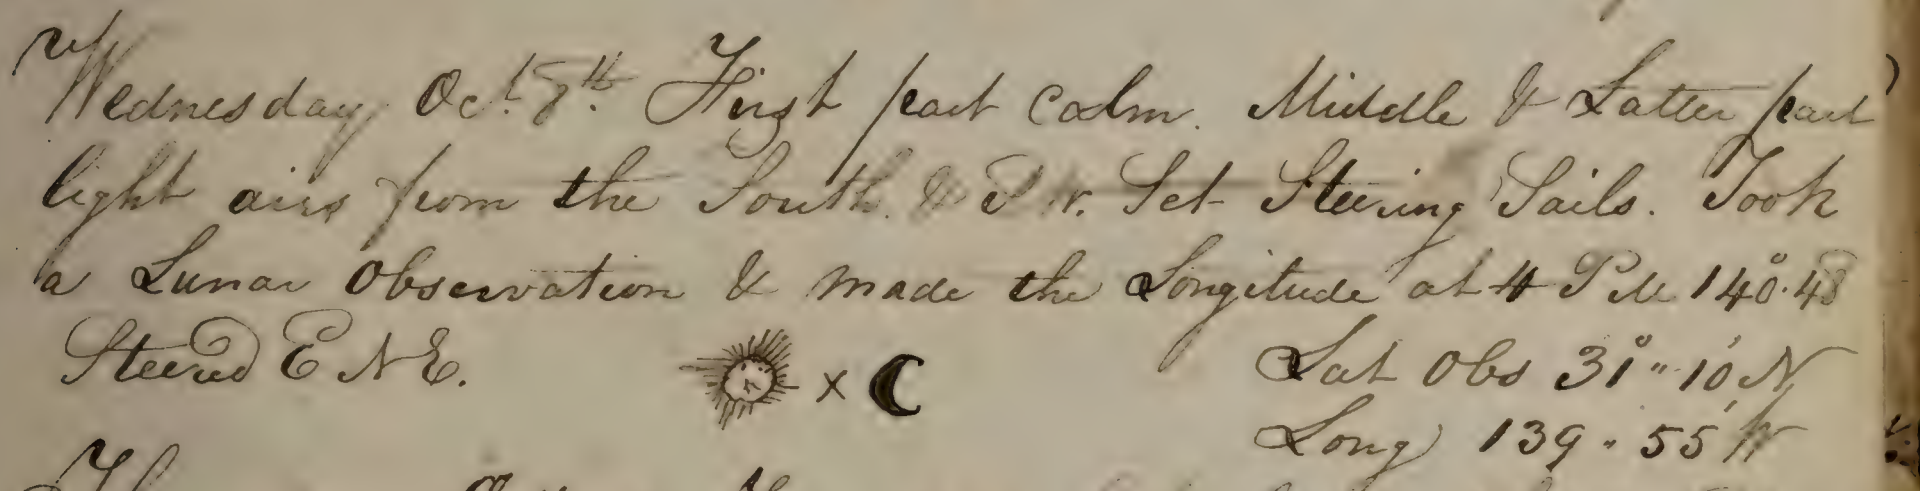 Wednesday Oct. 8th. First part calm. Middle & Latter part
light airs from the South. & S W. Set Steering Sails. Took
a Lunar Observation & made the Longitude at 4 P M 140°.48
Steered E N E. x Lat Obs 31° " 10' N
Long 139 " 55' W